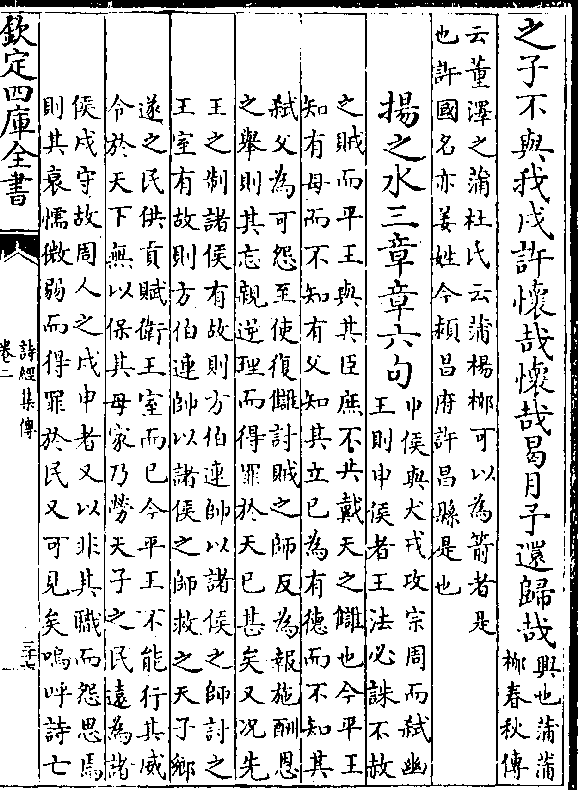 之子不與我戍許懷哉懷哉曷月予還歸哉
興也蒲蒲
柳春秋傳
云董澤之蒲杜氏云蒲楊柳可以為箭者是
也許國名亦姜姓今潁昌府許昌縣是也
揚之水三章章六句
申侯與犬戎攻宗周而弑幽
王則申侯者王法必誅不赦
之賊而平王與其臣庶不共戴天之讎也今平王
知有母而不知有父知其立已為有德而不知其
弑父為可怨至使復讎討賊之師反為報施酬恩
之舉則其忘親逆理而得罪於天已甚矣又况先
王之制諸侯有故則方伯連帥以諸侯之師討之
王室有故則方伯連帥以諸侯之師救之天子鄉
遂之民供貢賦衛王室而已今平王不能行其威
令於天下無以保其母家乃勞天子之民遠為諸
侯戍守故周人之戍申者又以非其職而怨思焉
則其衰懦微弱而得罪於民又可見矣嗚呼詩亡
欽定四庫全書
詩經集傳
卷二